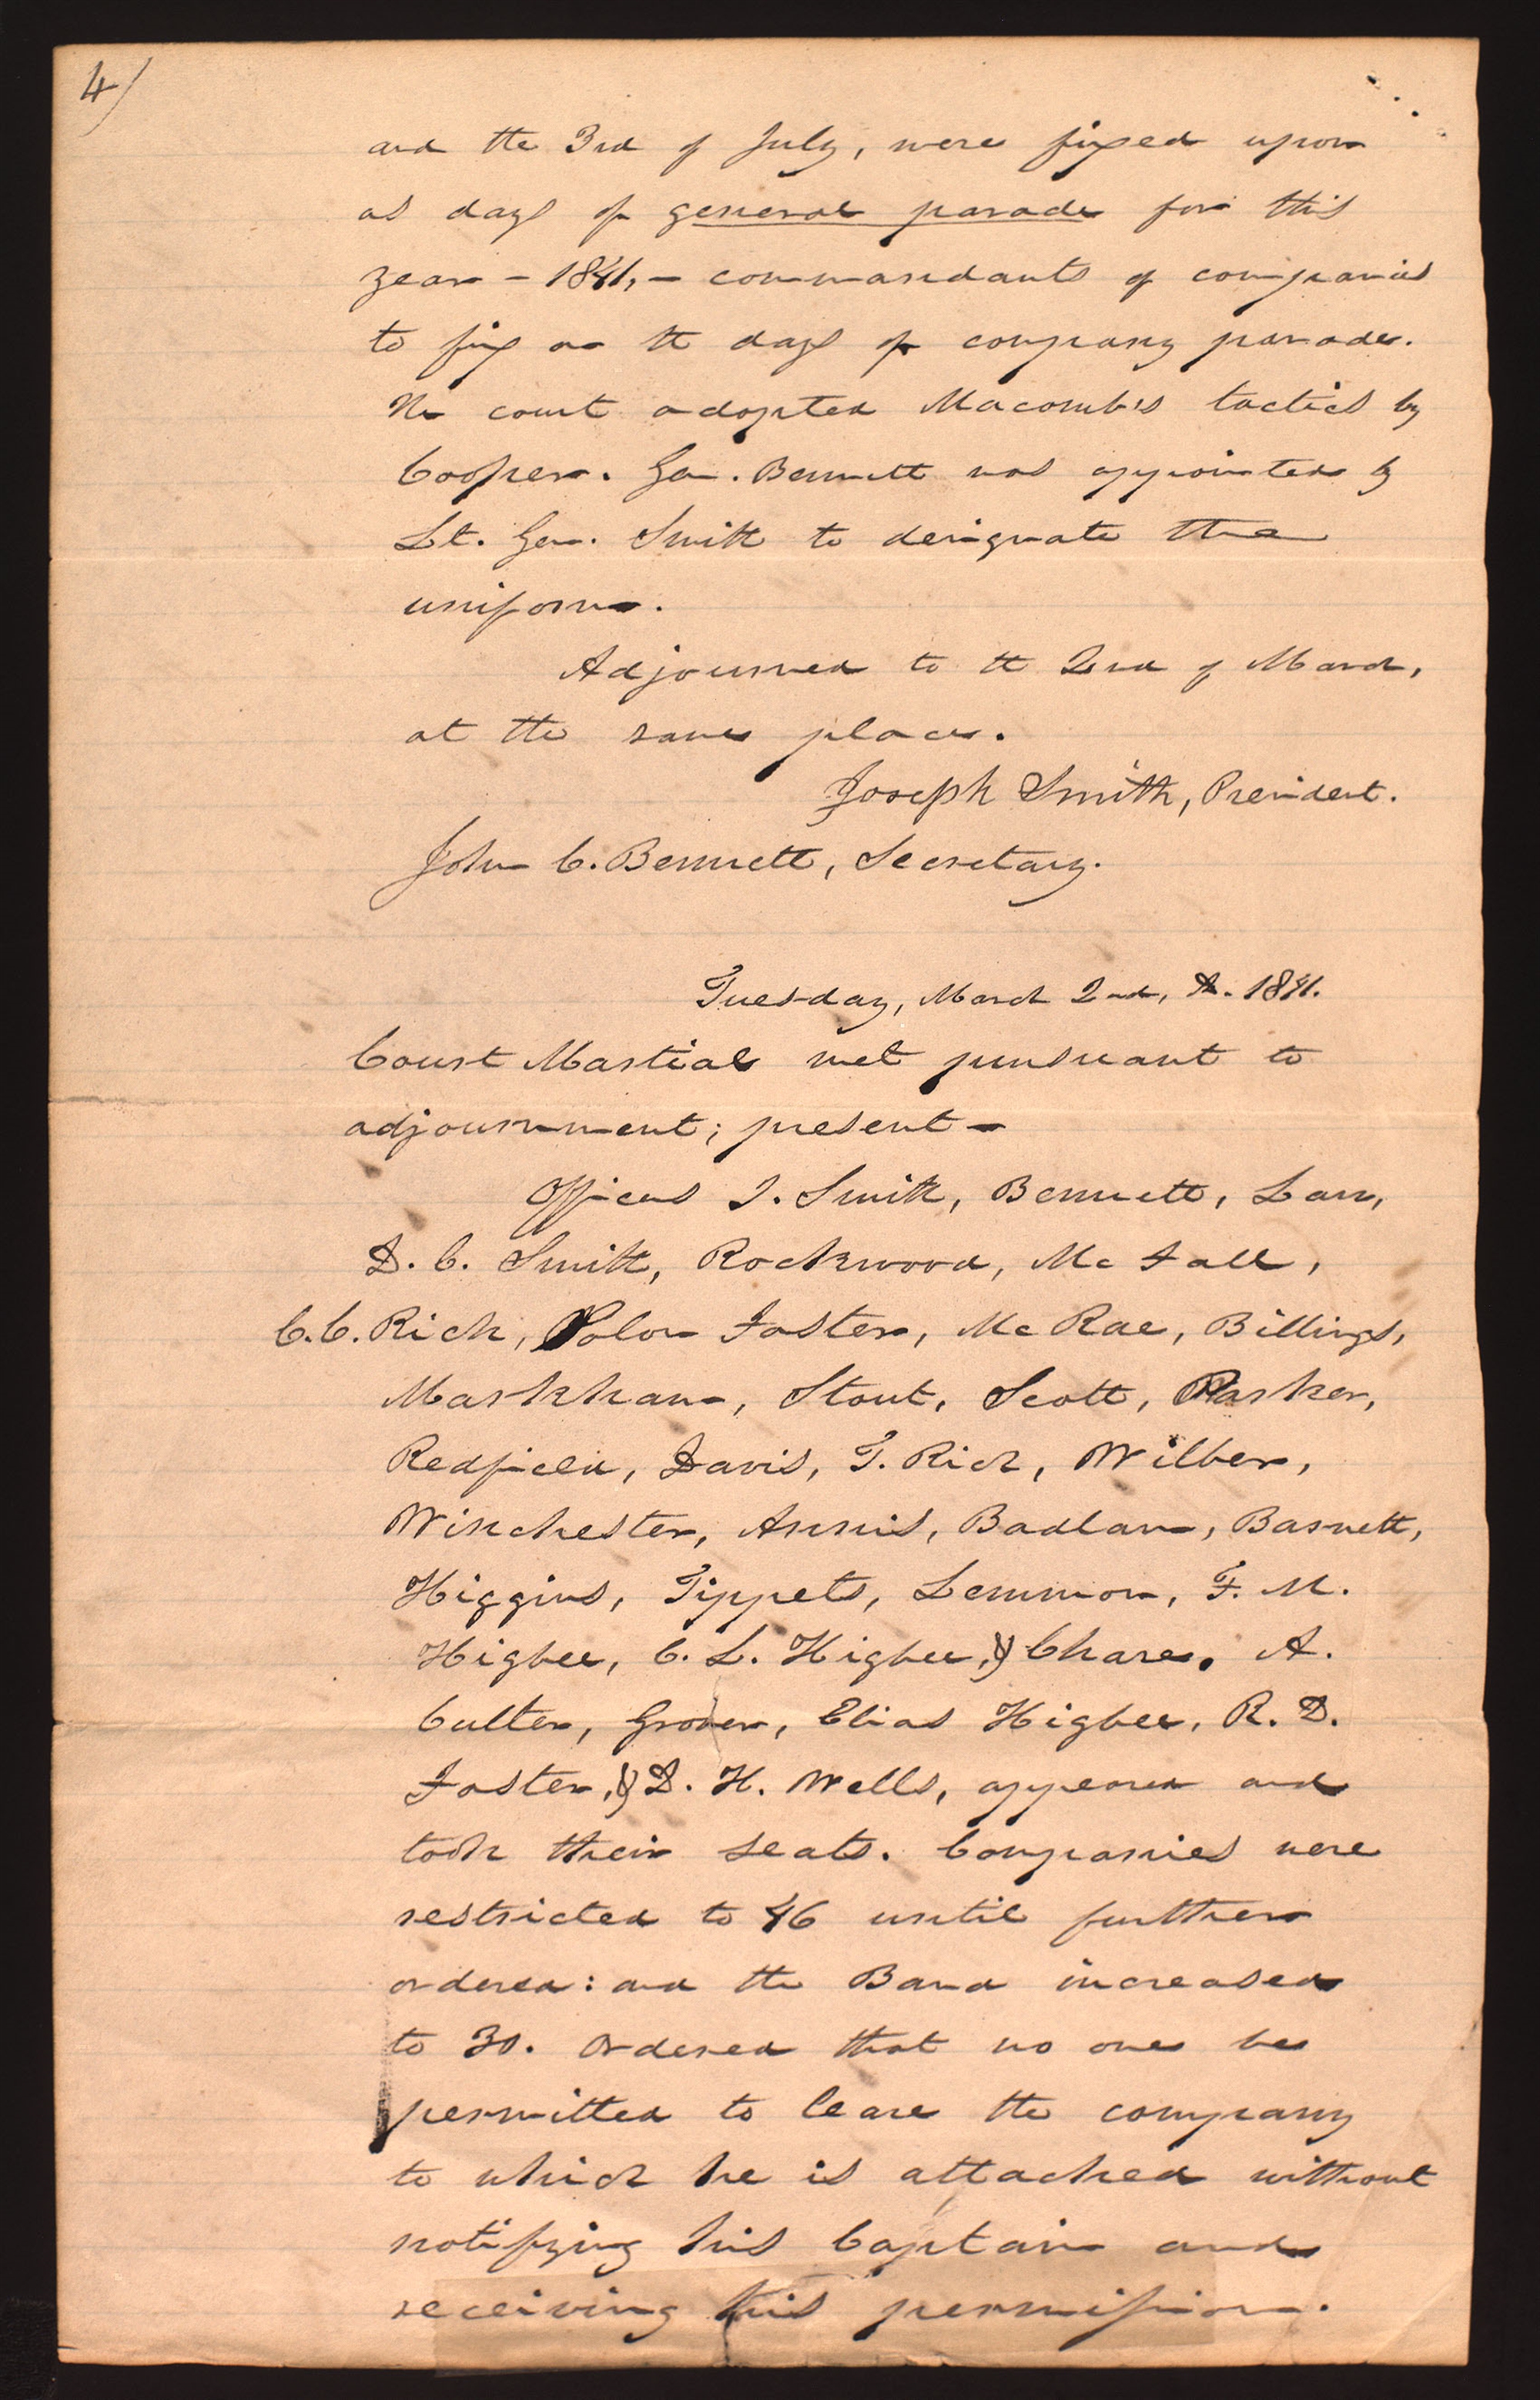 4)
and the 3rd of July, were fixed upon
as days of general parade for this
year – 1841, – commandants of companies
to fix on the days of company parade.
The court adopted Macomb's tactics by
Cooper. Gen. Bennett was appointed by
Lt. Gen. Smith to designate the
uniform.
Adjourned to the 2nd of March,
at the same place.
Joseph Smith, President.
John C. Bennett, Secretary.
Tuesday, March 2nd, 1841.
Court Martial met pursuant to
adjournment; present –
Officers J. Smith, Bennett, Law,
D. C. Smith, Rockwood, Mc Fall,
C. C. Rich, Solon Foster, Mc Rae, Billings,
Markham, Stout, Scott, Parker,
Redfield, Davis, T. Rich, Wilber,
Winchester, Annis, Badlam, Barnett,
Higgins, Tippets, Lemmon, F. M.
Higbee, C. L. Higbee, & Chase. A.
Cutler, Grover, Elias Higbee, R. D.
Foster, & D. H. Wells, appeared and
took their seats. Companies were
restricted to 46 until further
ordered: and the Band increased
to 30. Ordered that no one be
permitted to leave the company
to which he is attached without
notifying his Captain and
receiving his permission.